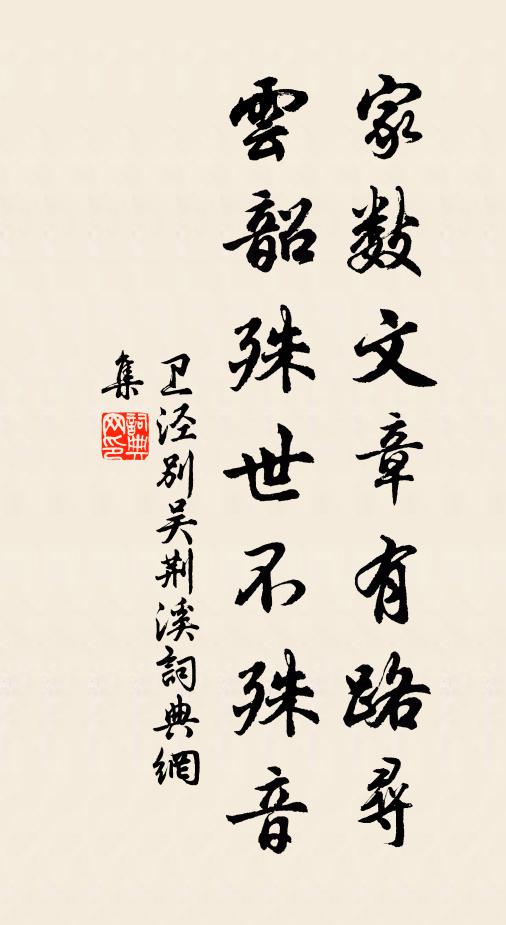 家数文章有路尋
雲韶殊世不殊音
卫泾别吴荆溪詞典網
集
詞典网印